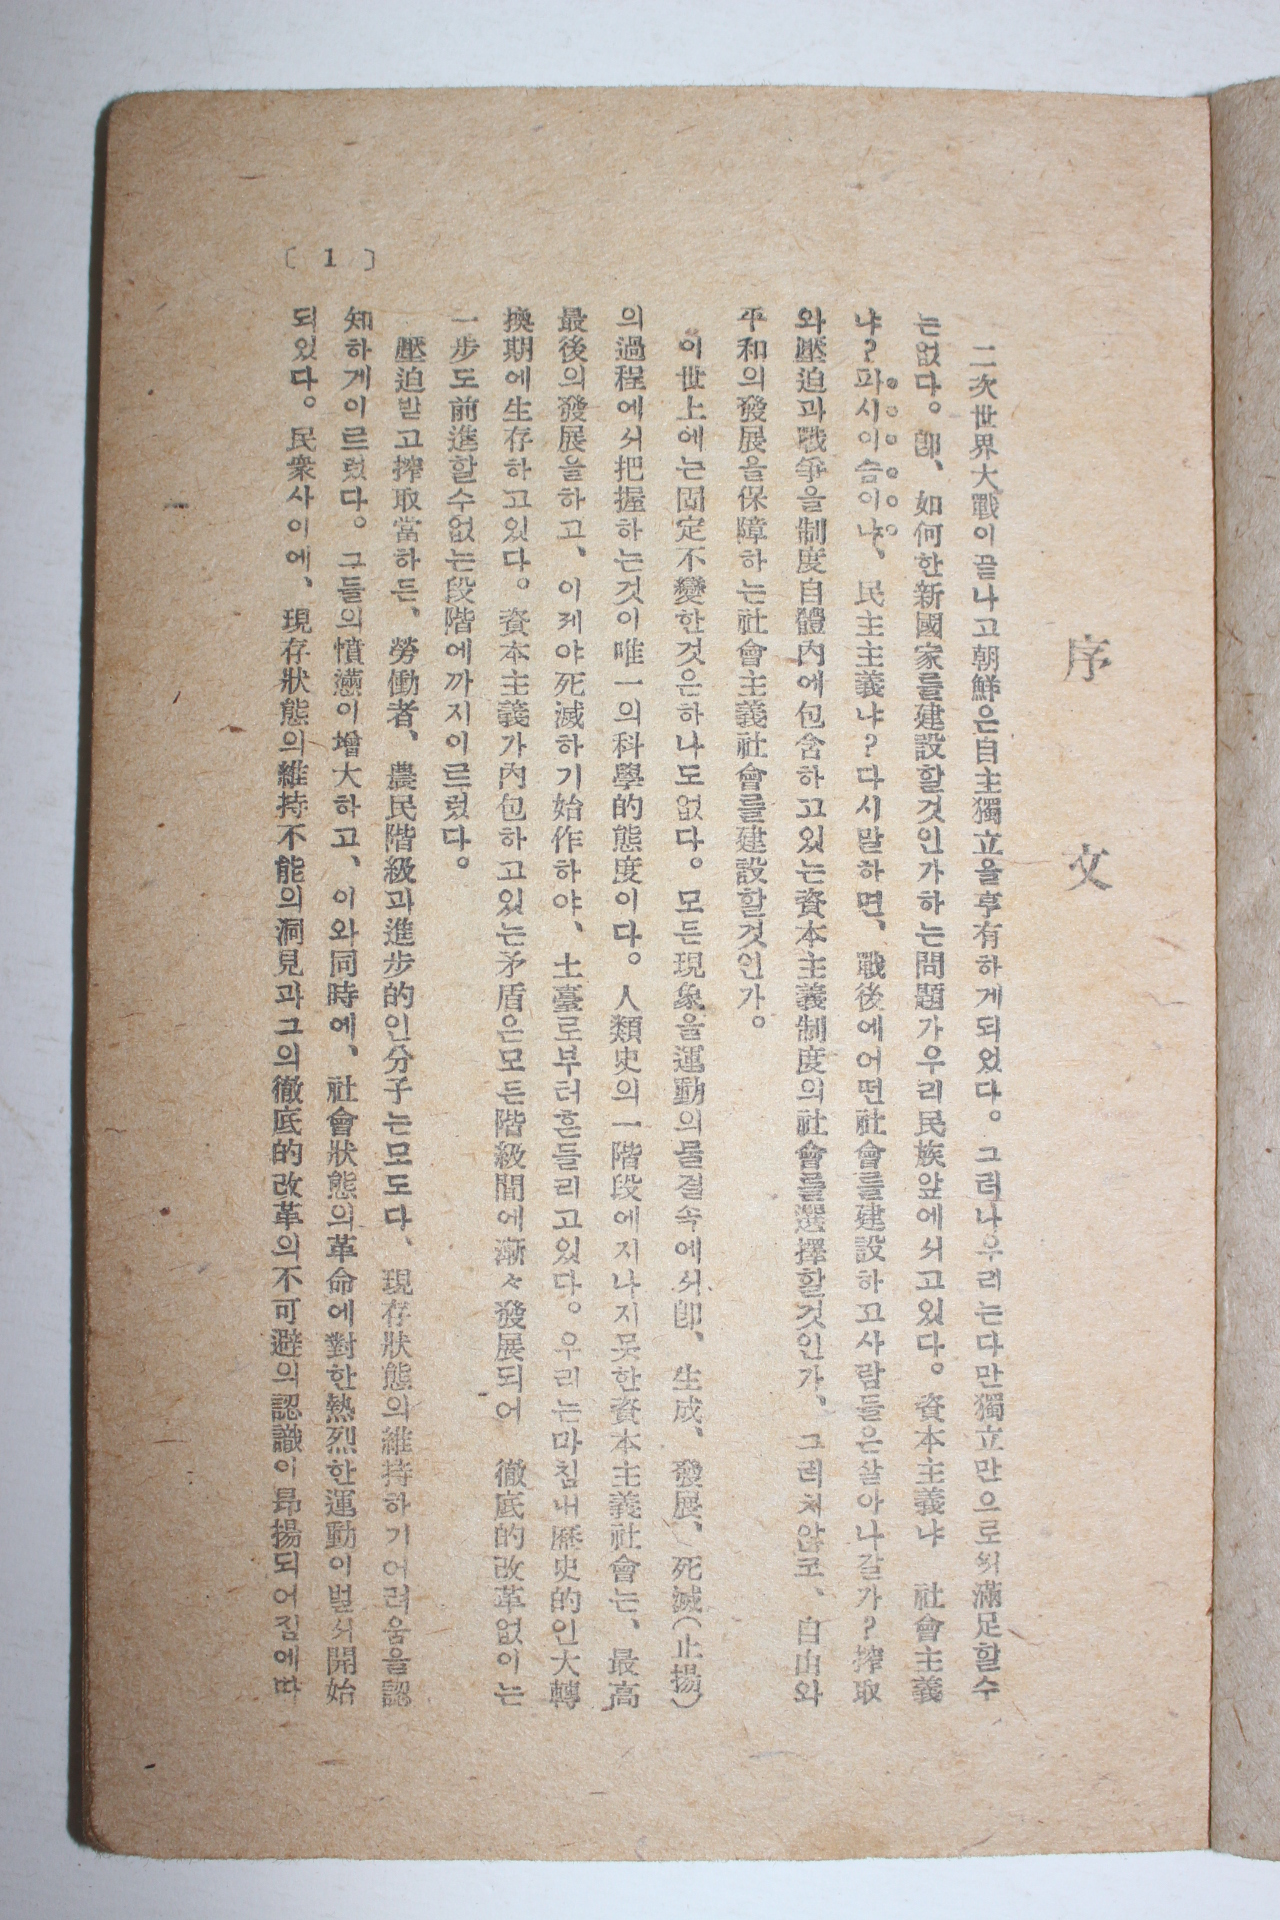 序文
二次世界大戰이끝나고朝鮮은自主獨立을享有하게되었다。그러나우리는다만獨立만으로써滿足할수
는없다。卽、如何한新國家를建設할것인가하는問題가우리民族앞에서고있다。資本主義냐 社會主義
냐?파시이슴이냐、民主主義냐?다시말하면、戰後에어떤社會를建設하고사람들은살아나갈가?搾取
와壓迫과戰爭을制度自體內에包含하고있는資本主義制度의社會를選擇할것인가、그렇지않고、自由와
平和의發展을保障하는社會主義社會를建設할것인가。
이世上에는固定不變한것은하나도없다。모든現象을運動의물결속에서卽、生成、發展、死滅(止揚)
의過程에서把握하는것이唯一의科學的態度이다。人類史의一階段에지나지못한資本主義社會는、最高
最後의發展을하고、이제야死滅하기始作하야、土臺로부터흔들리고있다。우리는마침내歷史的인大轉
換期에生存하고있다。資本主義가內包하고있는矛盾은모든階級間에漸々發展되어 徹底的改革없이는
一步도前進할수없는段階에까지이르렀다。
壓迫받고搾取當하든、勞働者、農民階級과進步的인分子는모도다、現存狀態의維持하기어려움을認
知하게이르렀다。그들의憤懣이增大하고、이와同時에、社會狀態의革命에對한熱烈한運動이벌서開始
되있다。民衆사이에、現存狀態의維持不能의洞見과그의徹底的改革의不可避의認識이昻揚되어짐에따
〔1〕